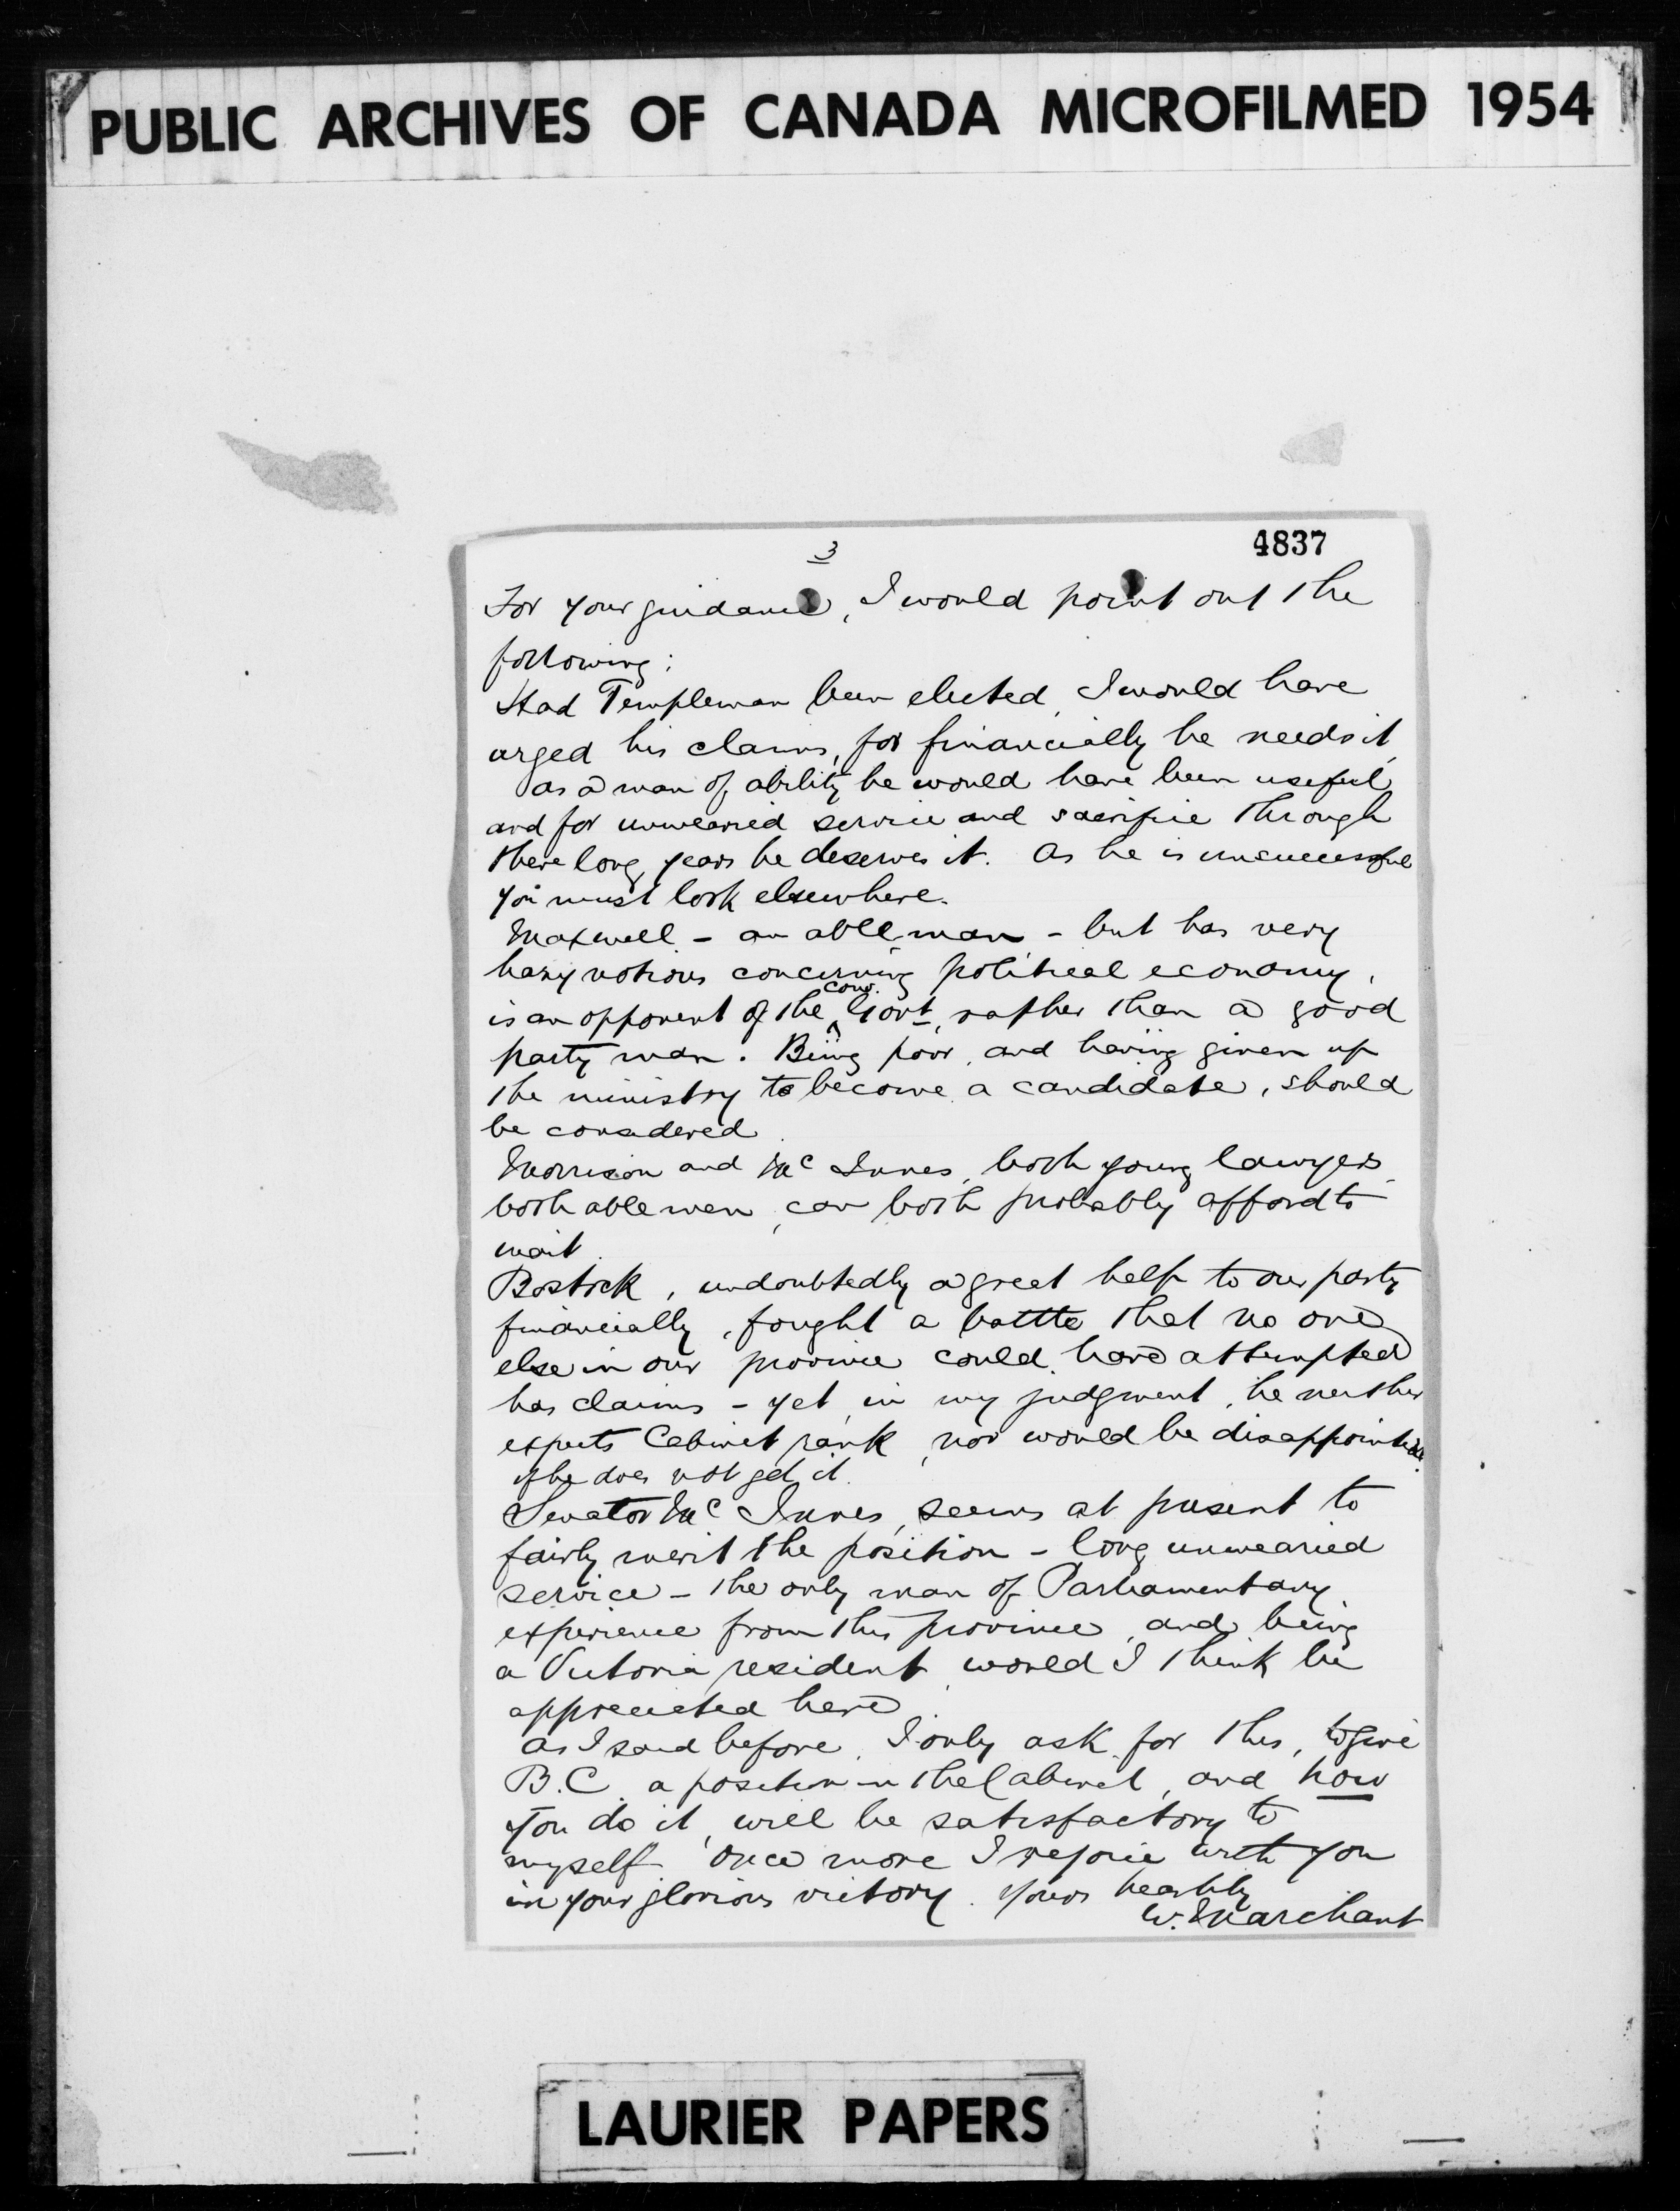 PUBLIC ARCHIVES OF CANADA MICROFILMED 1954
3
4837
For your guidance, I would point out the
following:
Had Templeman been elected, I would have
urged his claims, for financially he needs it,
as a man of ability he would have been useful,
and for unwearied service and sacrifice through
these long years he deserves it. As he is unsuccessful
you must look elsewhere.
Maxwell - an able man - but has very
hazy notions concerning political economy,
is an opponent of the Cons. Govt, rather than a good
party man. Being poor, and having given up
the ministry to become a candidate, should
be considered
Morrison and McInnes, both young lawyers,
both able men, can both probably afford to
wait.
Bostock, undoubtedly a great help to our party
financially, fought a battle that no one
else in our province could have attempted
has claims - yet, in my judgment, he neither
expects Cabinet rank, nor would be disappointed
if he does not get it.
Senator McInnes, seems at present to
fairly merit the position - long unwearied
service - the only man of Parliamentary
experience from this province, and being
a Victoria resident, would I think be
appreciated here
As I said before, I only ask for this, to give
B.C. a position in the Cabinet, and how
you do it, will be satisfactory to
myself. Once more I rejoice with you
in your glorious victory. Yours heartily
W. Marchant
LAURIER PAPERS